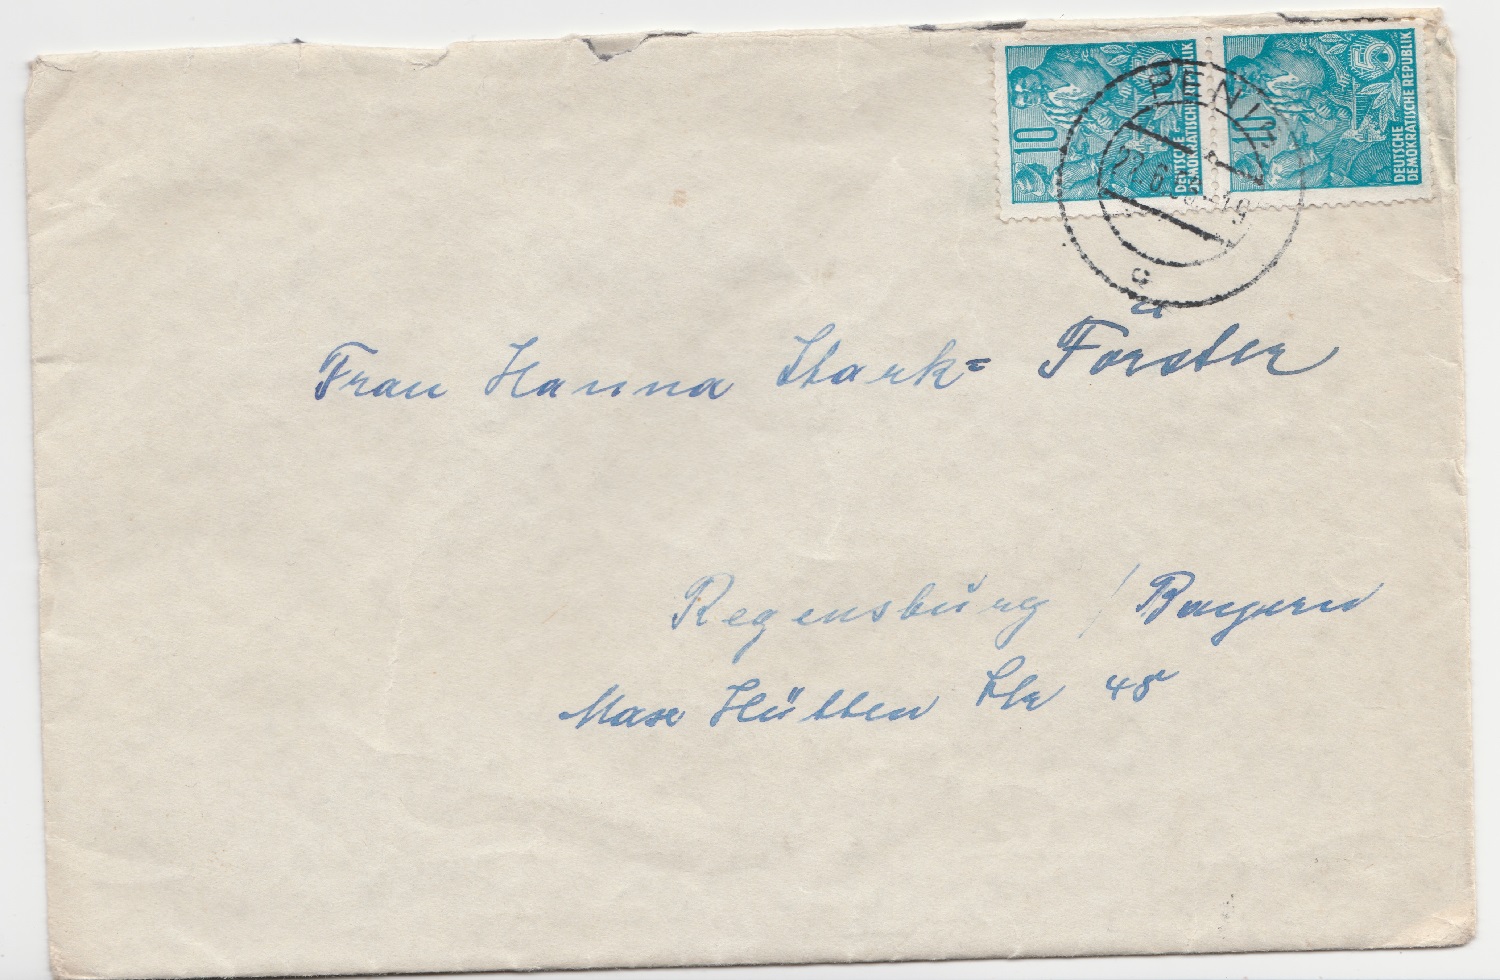 10 DEUTSCHE DEMOKRATISCHE REPUBLIK
10 5 DEUTSCHE DEMOKRATISCHE REPUBLIK
PENIG
c
Frau Hanna Stark= Förster
Regensburg / Bayern
Max Hütten Str 48